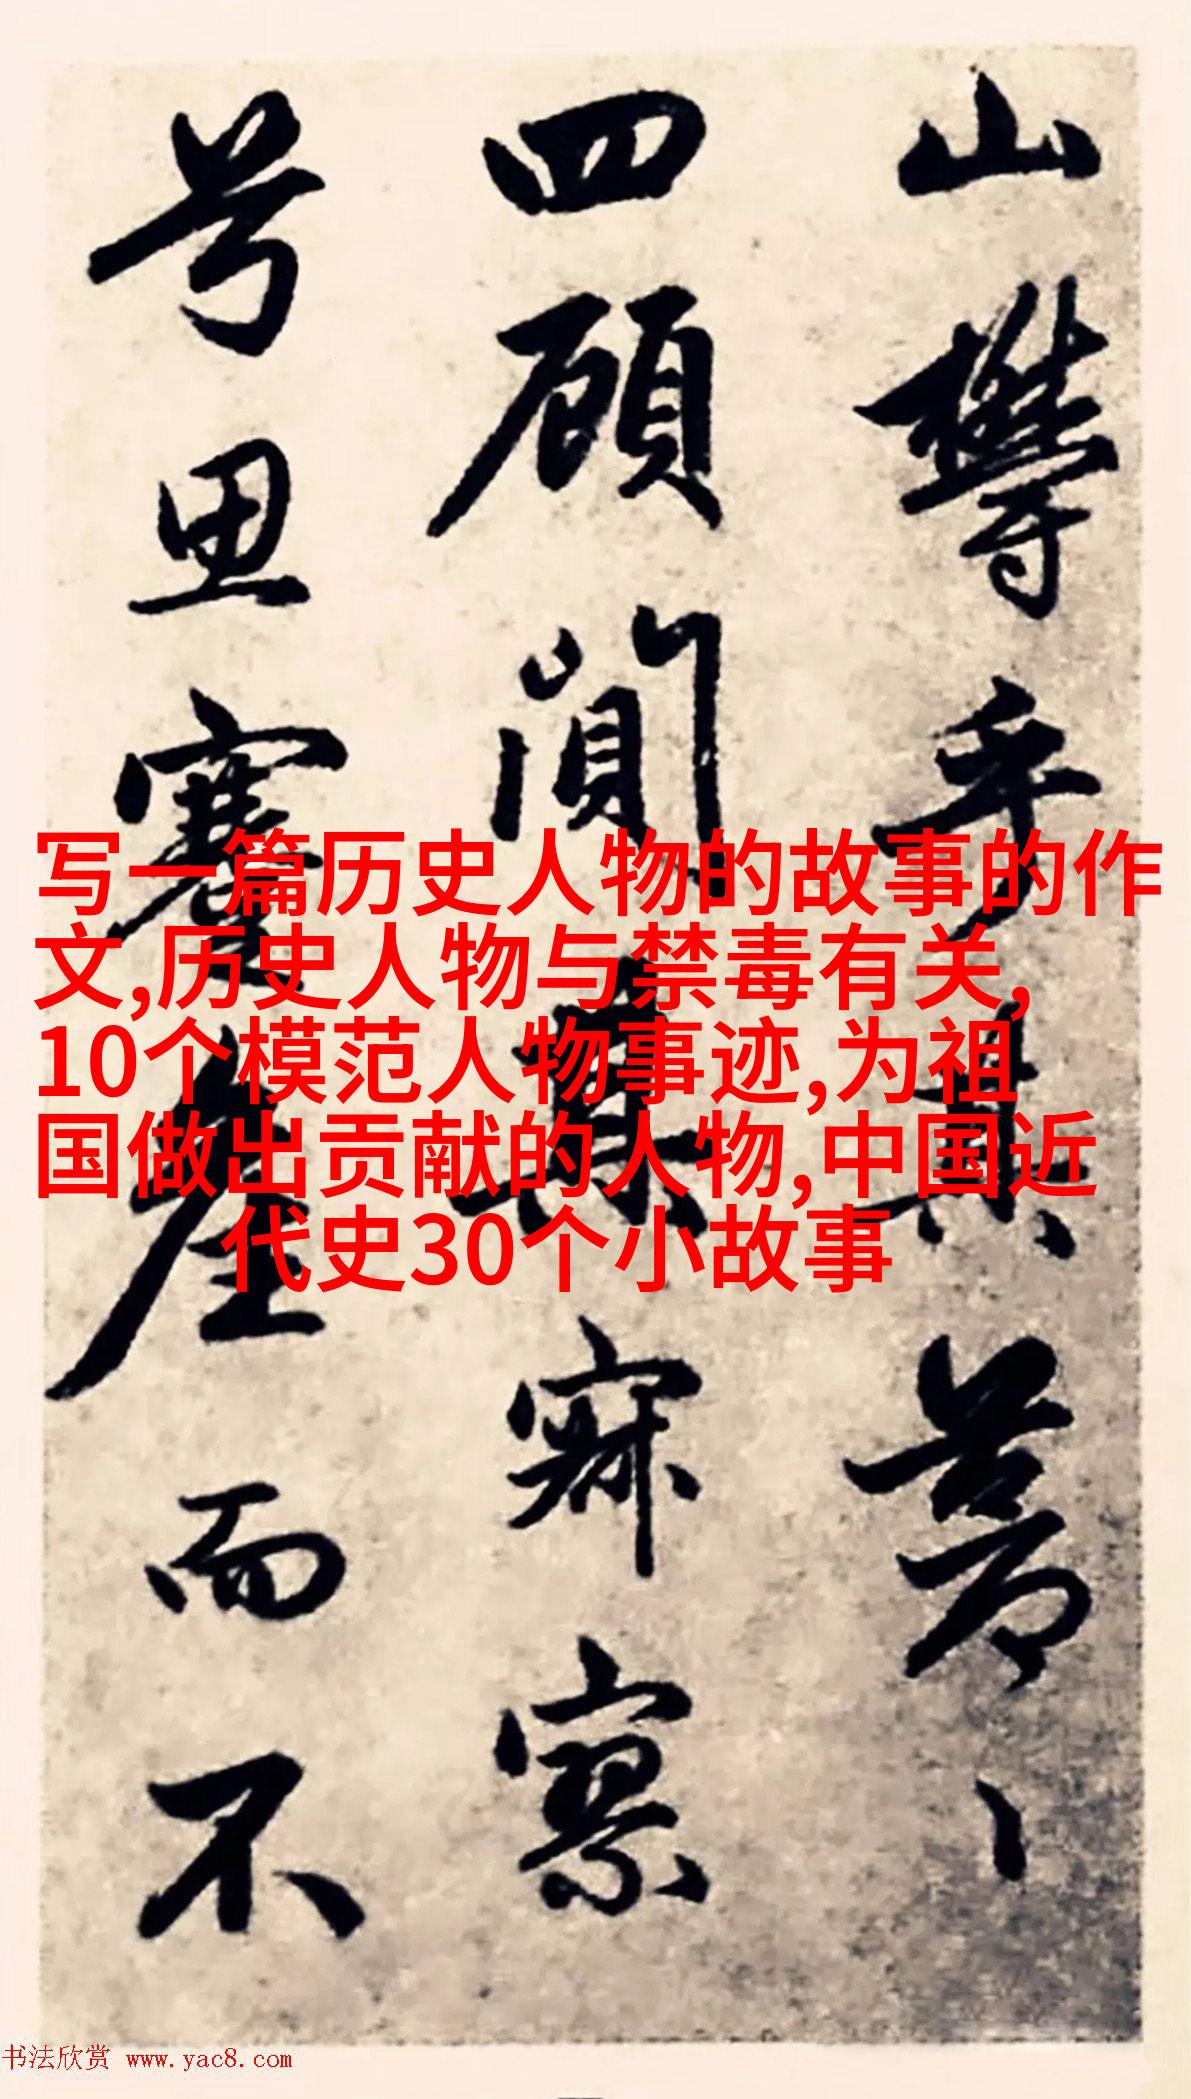 山欝乎其蒼
四顧闃其寂寥
兮思蹇産而不
写一篇历史人物的故事的作
文,历史人物与禁毒有关,
10个模范人物事迹,为祖
国做出贡献的人物,中国近
代史30个小故事
书法欣赏 www.yac8.com